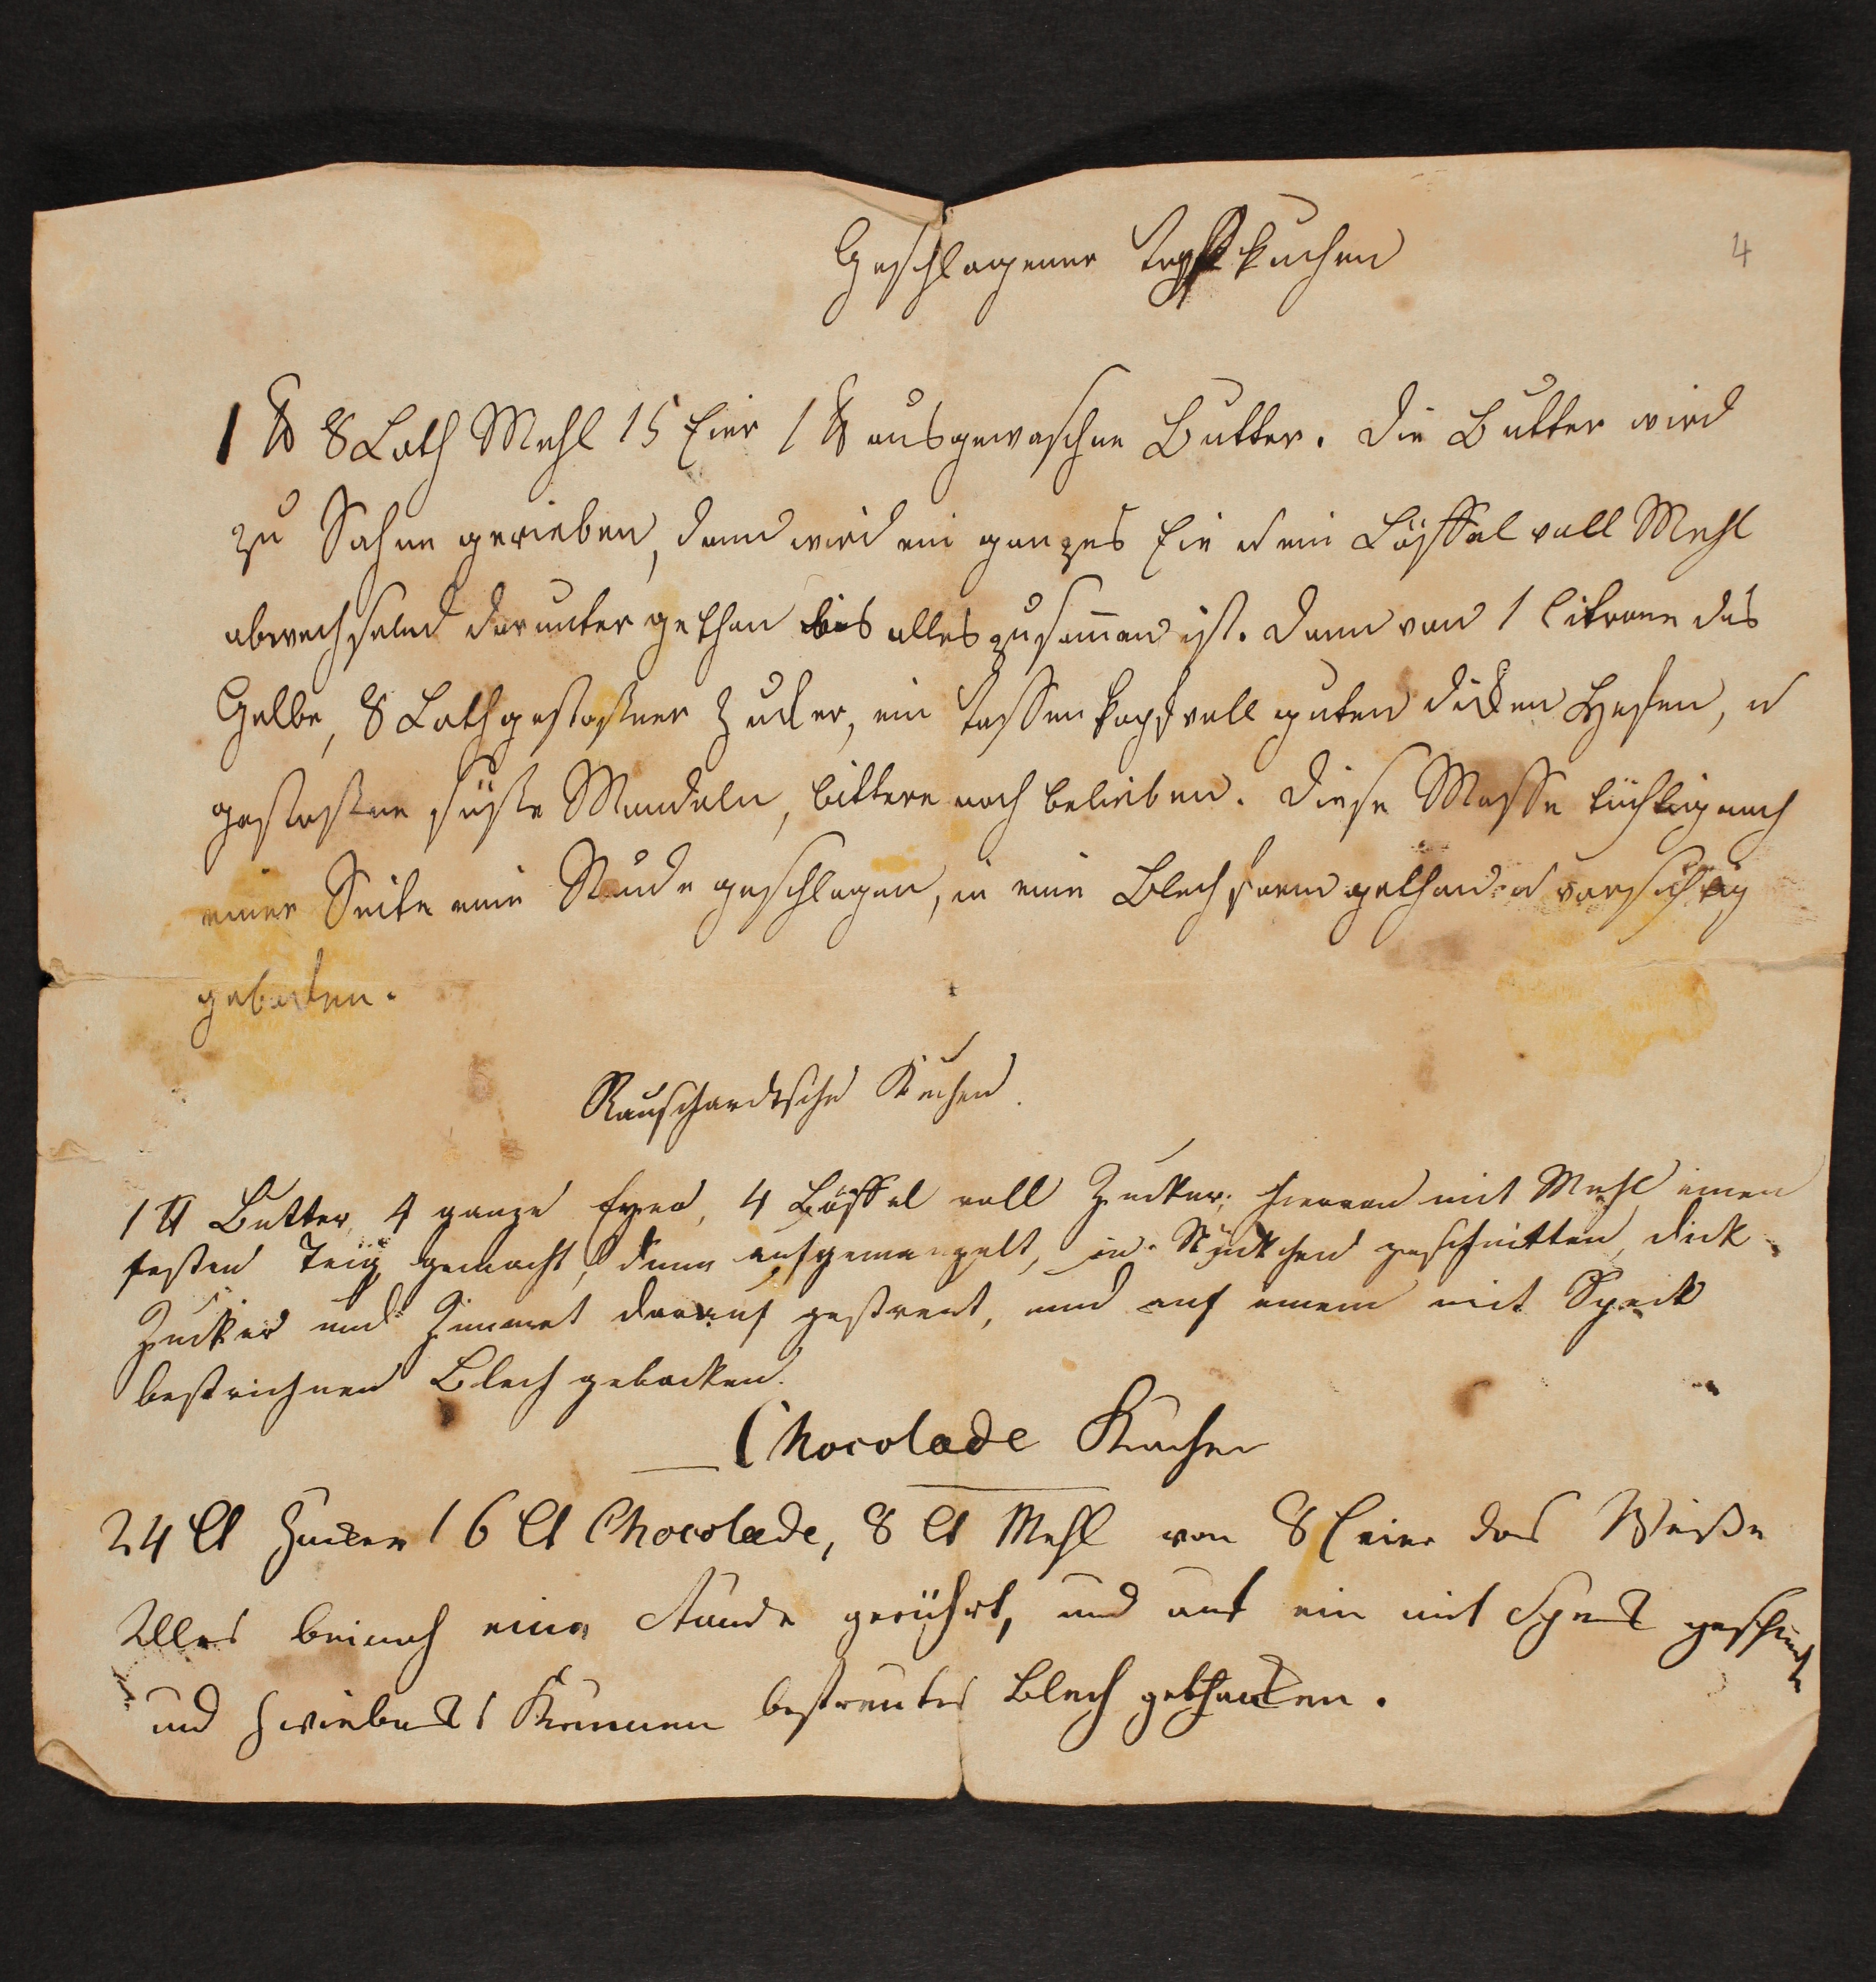 Geschlagener Topfkuchen
4
1 ℔ 8 Loth Mehl 15 Eier 1 ℔ ausgewaschne Butter. Die Butter wird
zu Sahne gerieben, dann wird ein ganzes Ei u ein Löffel voll Mehl
abwechselnd darunter gethan bis alles zusam̅en ist. Dann von 1 Citrone das
Gelbe, 8 Loth gestoßner Zucker, ein Tassenkopf voll guten dicken Hefen, u
gestoßne süße Mandeln, bittere nach belieben. Diese Masse tüchtig nach
einer Seite eine Stunde geschlagen, in eine Blechform gethan u vorsichtig
gebacken.
Rauschardtsche Kuchen.
1 ℔ Butter, 4 ganze Eyer, 4 Löffel voll Zucker; hiervon mit Mehl einen
festen Teig gemacht, dünn aufgemangelt, in Stückchen geschnitten, dick
Zucker und Zimmet darauf gestreut, und auf einem mit Speck
bestrichnen Blech gebacken.
Chocolade Kuchen
24 Lt Zucker 16 Lt Chocolade, 8 Lt Mehl von 8 Eier das Weiße
Alles beinah eine Stunde gerührt, und auf ein mit Speck
und Zwieback Krumen bestreutes Blech gebacken.